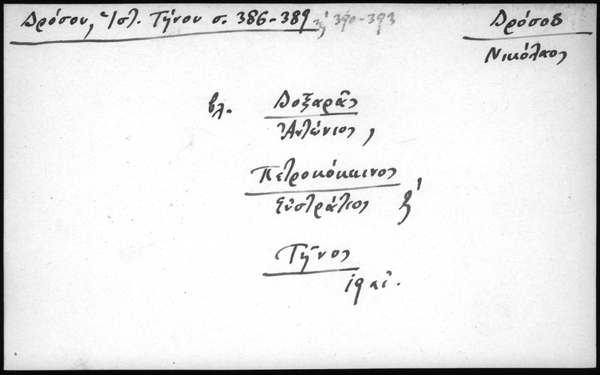 Δρόσου, Ἱστ. Τήνου σ. 386-389 ἤ 390-393
Δρόσος
Νικόλαος
βλ. Δοξαρᾶς
Ἀντώνιος,
Πετροκόκκινος
Εὐστράτιος ἤ
Τῆνος
19 αἰ.